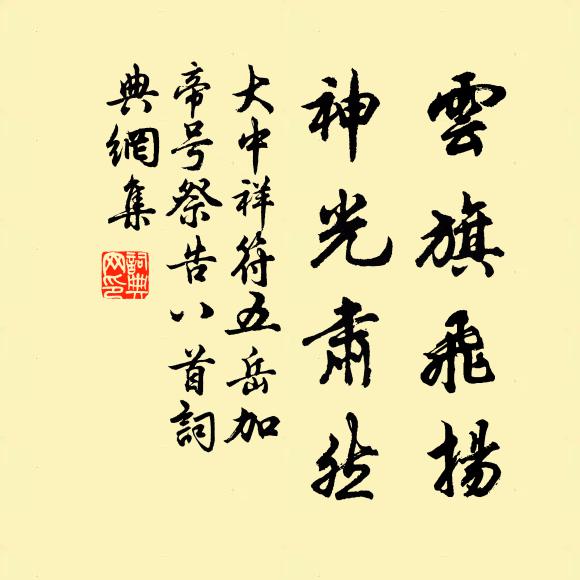 雲旗飛揚
神光肅然
大中祥符五岳加
帝号祭告八首詞
典網集
詞典
网印